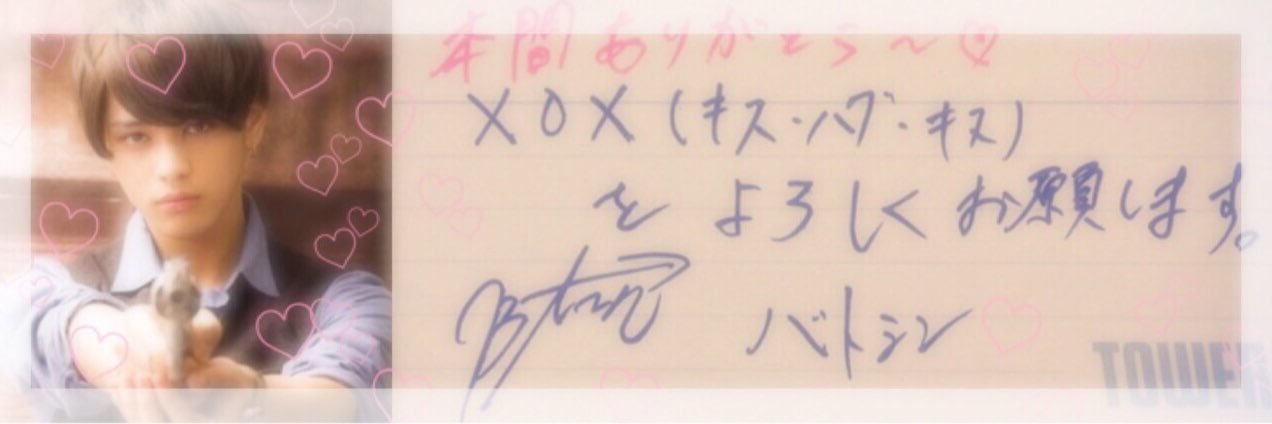 本間ありがとう〜♡
XOX(キス・ハグ・キス)
をよろしくお願いします。
バトシン
TOWER